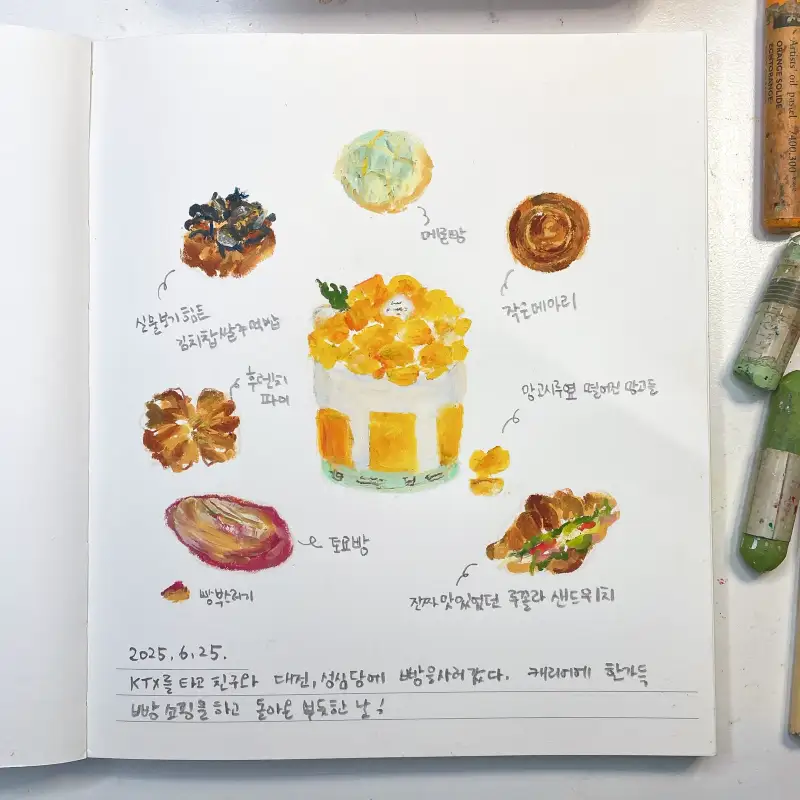 메론빵
작은메아리
실물보기힘든
김치찹쌀주먹밥
후렌치
파이
망고시루옆 떨어진 망고들
토요빵
빵부스러기
진짜 맛있었던 루꼴라 샌드위치
2025.6.25.
KTX를 타고 친구와 대전, 성심당에 빵을사러갔다. 캐리어에 한가득
빵 쇼핑을 하고 돌아온 뿌듯한 날!
Artists' oil pastel
ORANGE SOLIDE
7400.300